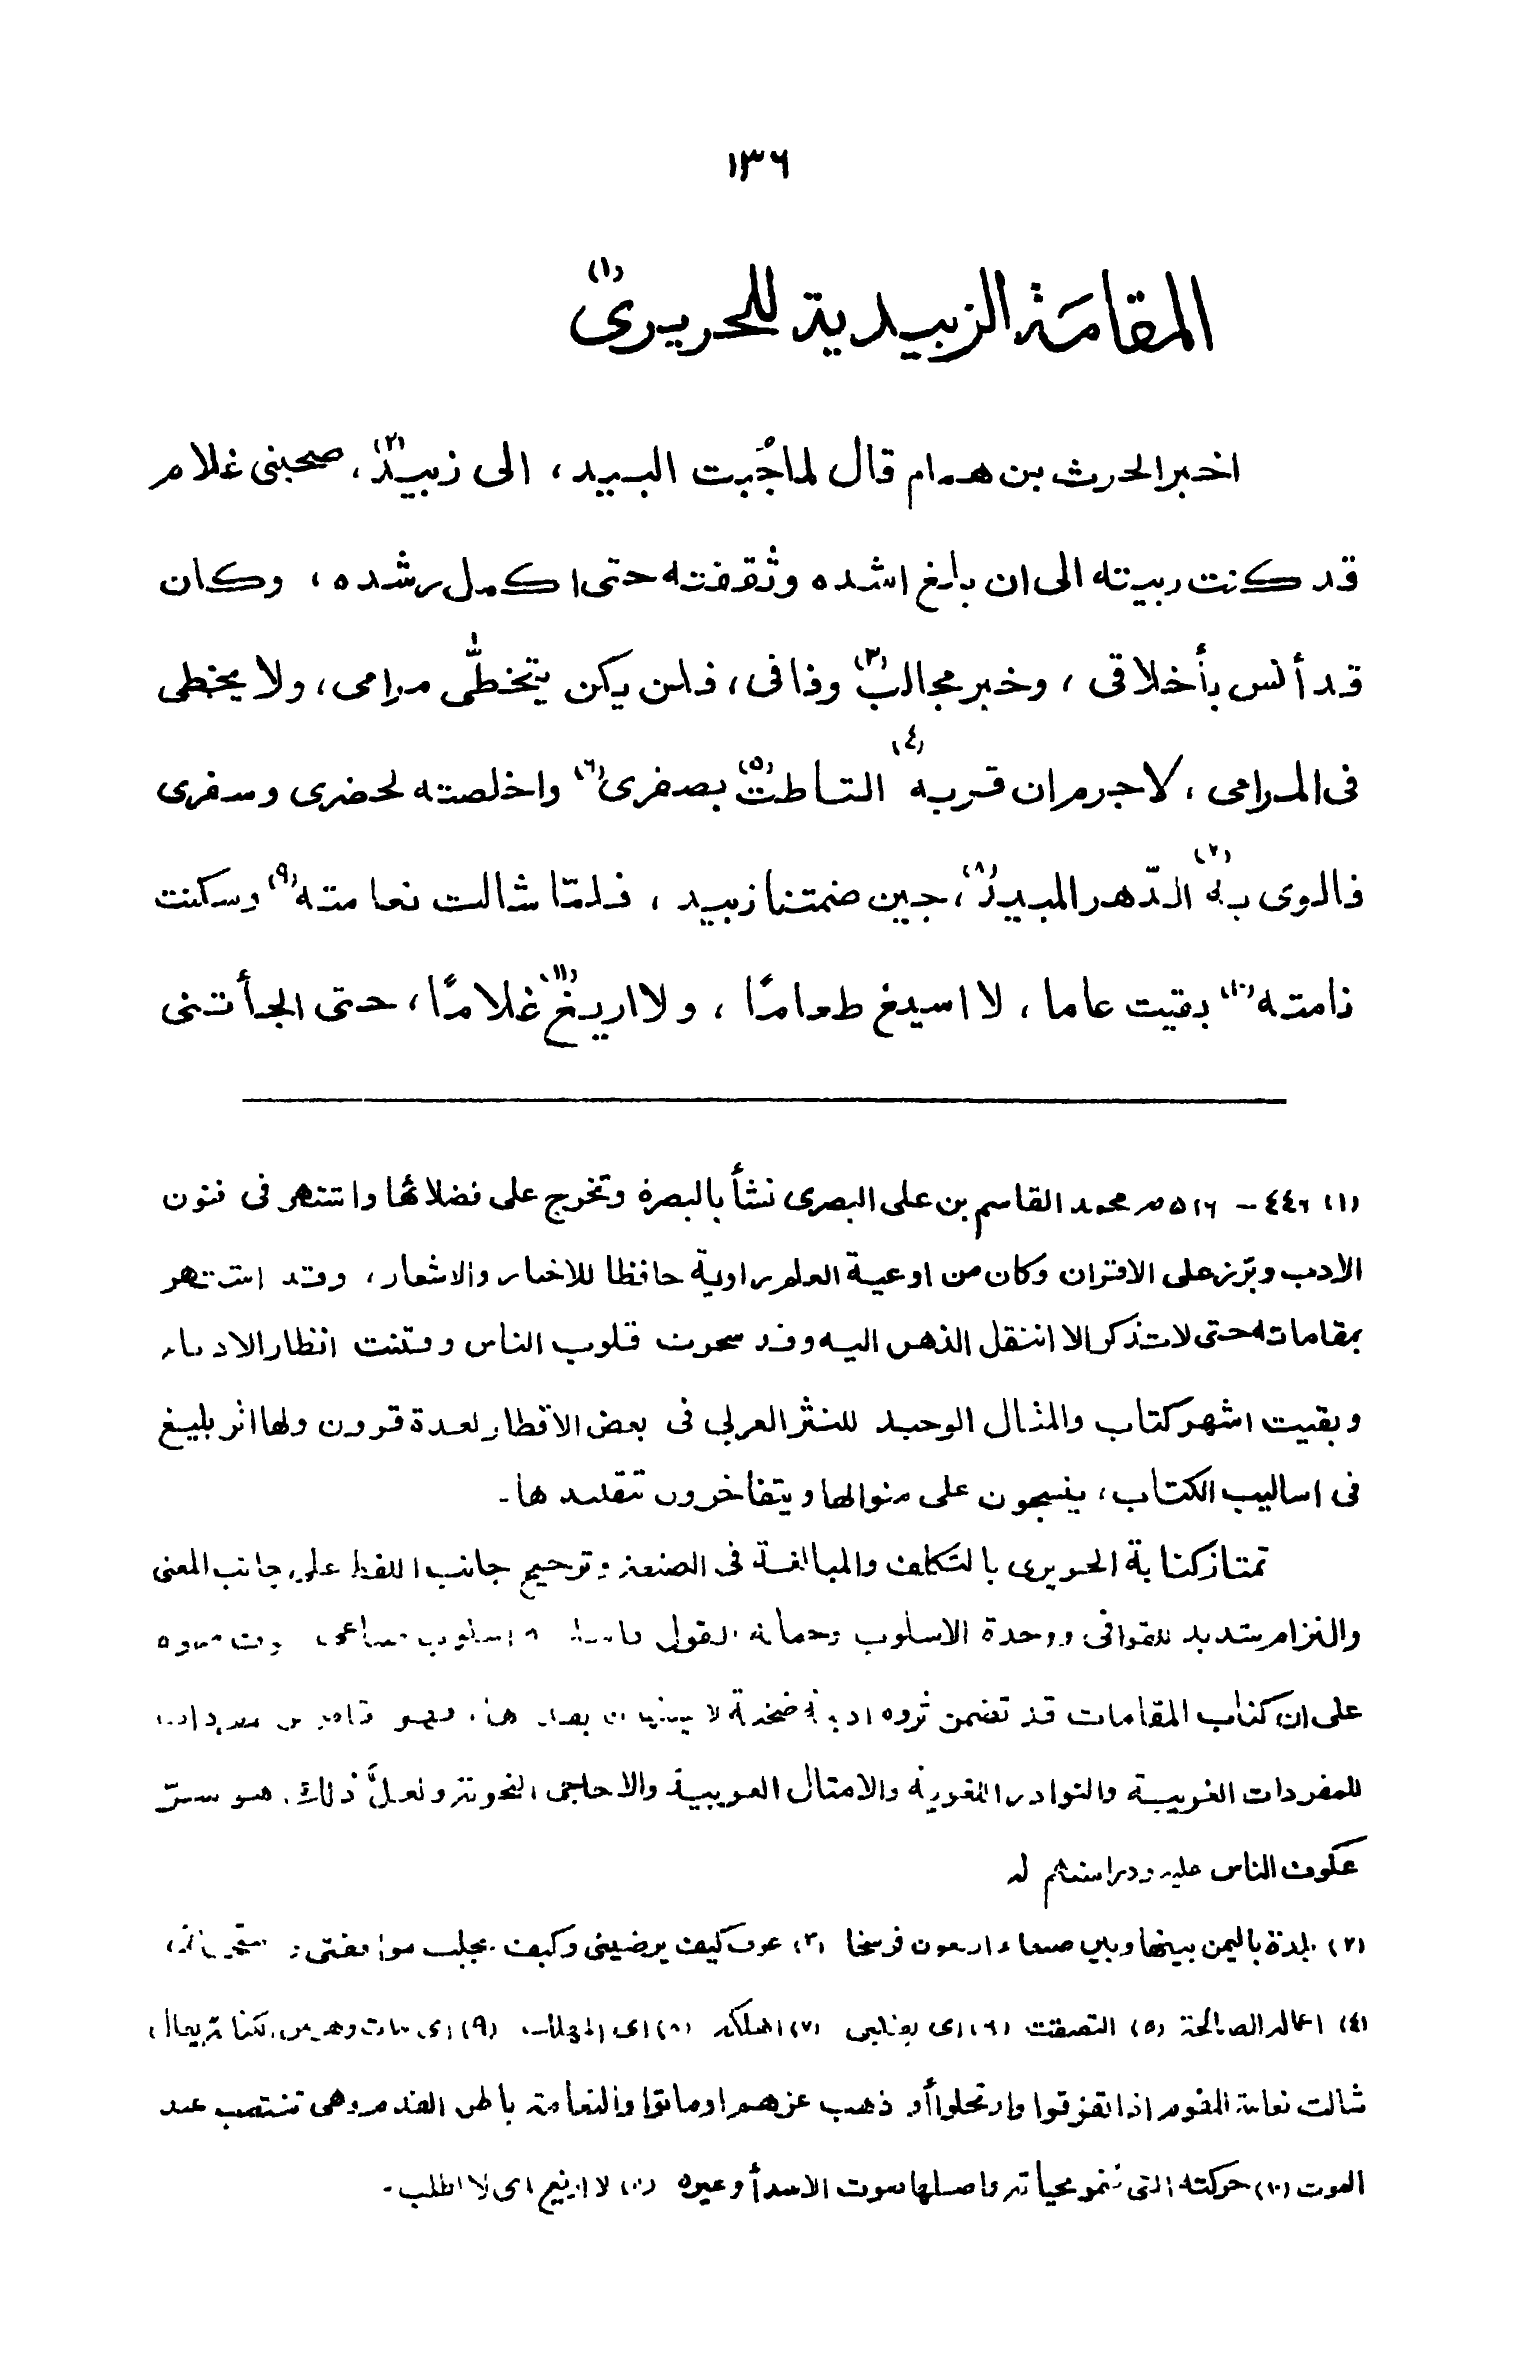 ١٣٦
المقامة الزبيدية للحريرى (١)
اخبر الحرث بن همام قال لما جُبت البيد، الى زبيد (٢)، صحبنى غلام
قد كنت ربيته الى ان بلغ اشده وثقفته حتى اكمل رشده، وكان
قد أنس بأخلاقى، وخبر مجالب (٣) وفاقى، فلم يكن يتخطّى مرامى، ولا يخطى
فى المرامى، لا جرم ان قربه (٤) التاطت (٥) بصفرى (٦) واخلصته لحضرى وسفرى
فالوى به (٧) الدّهر المبيد (٨)، حين ضمتنا زبيد، فلمّا شالت نعامته (٩) وسكنت
نامته (١٠) بقيت عاما، لا اسيغ طعامًا، ولا اريغ (١١) غلامًا، حتى الجأتنى
(١) ٤٤٦ – ٥١٦ھ محمد القاسم بن على البصرى نشأ بالبصرة وتخرج على فضلائها واشتهر فى فنون
الادب وبرّز على الاقران وكان من اوعية العلم راوية حافظا للاخبار والاشعار، وقد اشتهر
بمقاماته حتى لا تذكر الا انتقل الذهن اليه وقد سحرت قلوب الناس وفتنت انظار الادباء
وبقيت اشهر كتاب والمثال الوحيد للنثر العربى فى بعض الاقطار لعدة قرون ولها اثر بليغ
فى اساليب الكتاب، ينسجون على منوالها ويتفاخرون بتقليدها۔
تمتاز كتابة الحريرى بالتكلف والمبالغة فى الصنعة وترجيح جانب اللفظ على جانب المعنى
والتزام شديد للقوافى ووحدة الاسلوب
على ان كتاب المقامات قد تضمن ثروة ادبية ضخمة لا يستهان بها
للمفردات الغريبة والنوادر اللغوية والامثال العربية والاحاجى النحوية ولعلّ ذلك هو سرّ
عكوف الناس عليه ودراستهم له
(٢) بلدة باليمن بينها وبين صنعاء اربعون فرسخا (٣) عرف كيف يرضينى وكيف يجلب موافقتى
(٤) اعماله الصالحة (٥) التصقت (٦) اى بقلبى (٧) اهلكه (٨) اى المهلك (٩) اى مات وهو من الكناية يقال
شالت نعامة القوم اذا تفرقوا وارتحلوا أو ذهب عزهم او ماتوا والنعامة باطن القدم وهى تنتصب عند
الموت (١٠) حركته التى تنمو بحياته واصلها صوت الاسد أو غيره (١١) لا اريغ اى لا اطلب۔